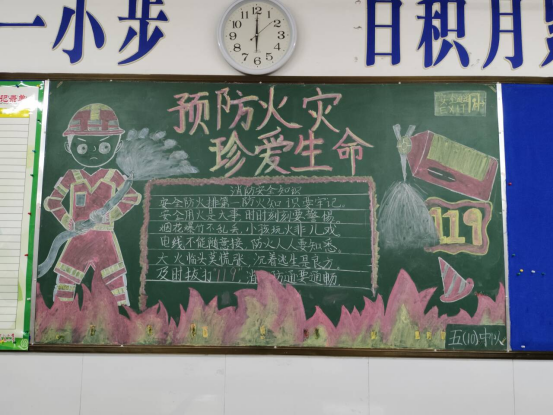 一小步
日积月
12 1 2 3 4 5 6 7 8 9 10 11
预防火灾
珍爱生命
消防安全知识
安全防火排第一 防火知识要牢记。
安全用火是大事 时时刻刻要警惕。
烟花爆竹不乱丢，小孩玩火非儿戏
电线不能随意接，防火人人要知悉。
大火临头莫慌张，沉着逃生是良方。
及时拨打"119"，消防通要通畅
119
五(10)中队